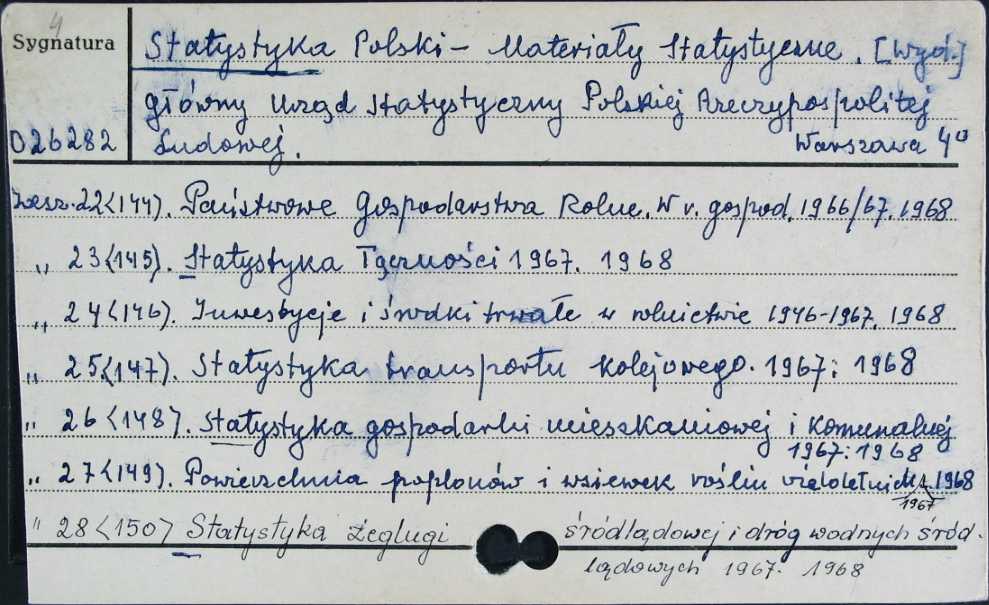 4
Sygnatura
Statystyka Polski – Materiały Statystyczne. [Wyd.]
główny Urząd Statystyczny Polskiej Rzeczypospolitej
026282 Ludowej. Warszawa 4°
Zesz. 22<144). Państwowe Gospodarstwa Rolne. W r. gospod. 1966/67. 1968
„ 23<145). Statystyka Łączności 1967. 1968
„ 24<146). Inwestycje i środki trwałe w rolnictwie 1946-1967. 1968
„ 25<147). Statystyka transportu kolejowego. 1967: 1968
„ 26<148). Statystyka gospodarki mieszkaniowej i komunalnej
1967: 1968
„ 27<149). Powierzchnia poplonów i wsiewek roślin wieloletnich 1968
1967
" 28<150> Statystyka żeglugi śródlądowej i dróg wodnych śród.
lądowych 1967. 1968